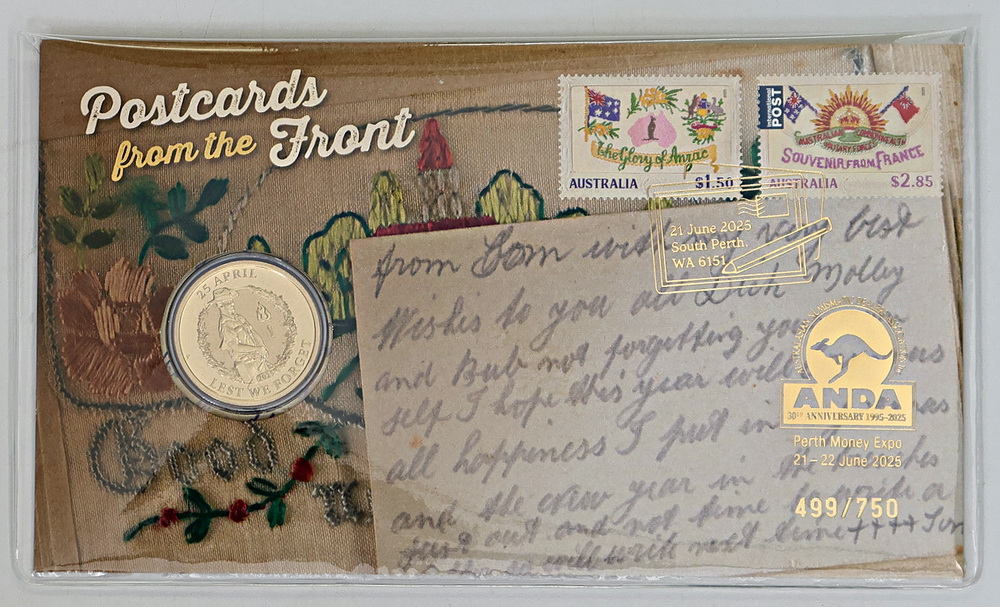 Postcards
from the Front
25 APRIL
LEST WE FORGET
The Glory of Anzac
AUSTRALIA $1.50
International
POST
AUSTRALIAN COMMONWEALTH
MILITARY FORCES
SOUVENIR FROM FRANCE
AUSTRALIA $2.85
21 June 2025
South Perth,
WA 6151
from Tom with very best
Wishes to you all Dick Molley
and Bub not forgetting your
self I hope this year will
all happiness I put in
and the New year in the
just out and not time to write a
will write next time ++++ Tom
ANDA
30TH ANNIVERSARY 1995-2025
Perth Money Expo
21–22 June 2025
499/750